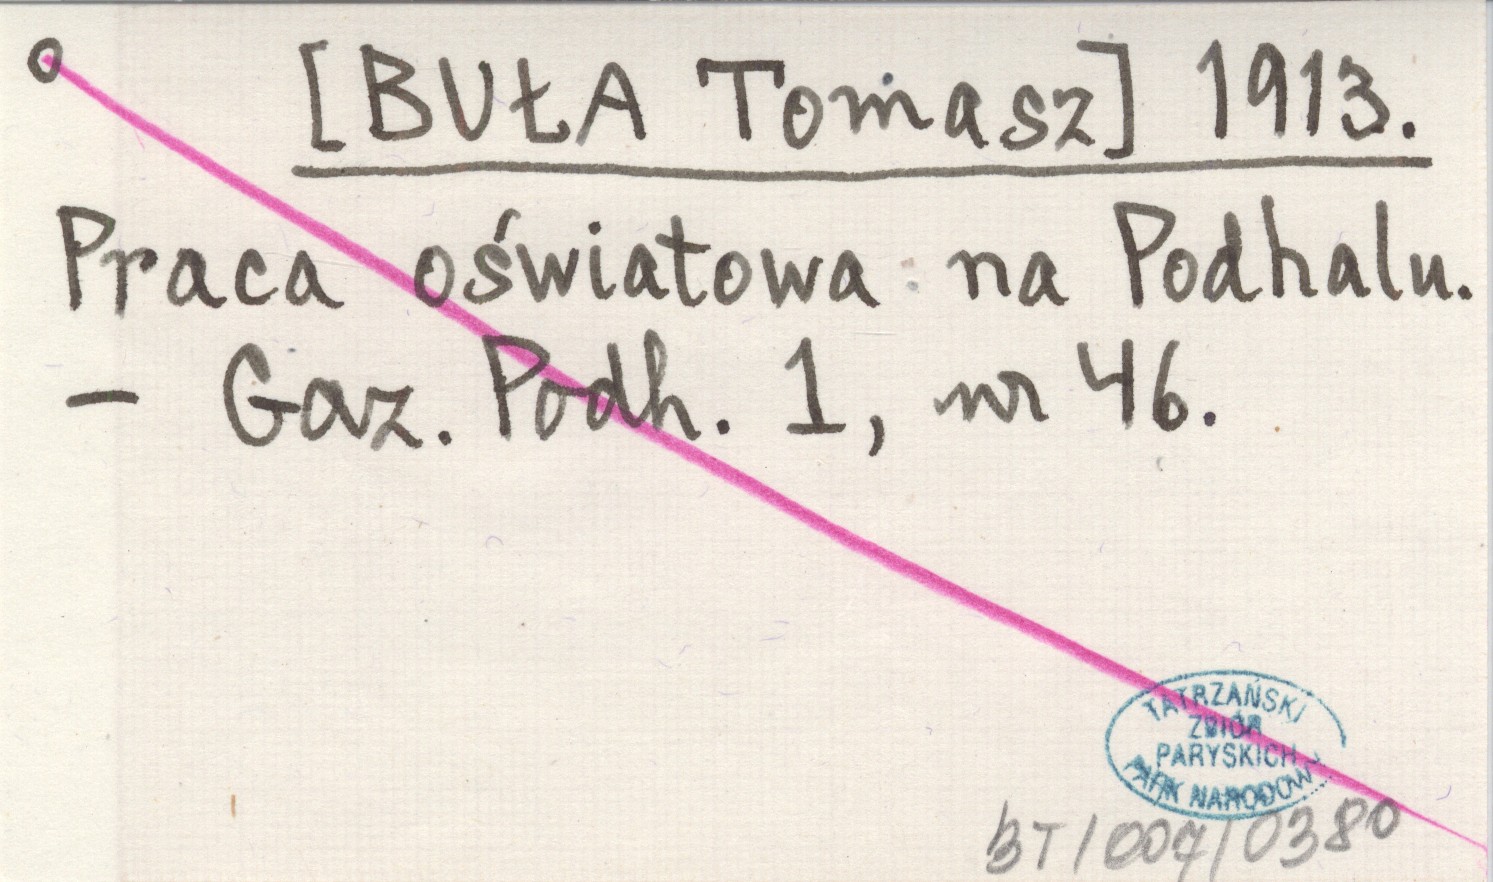 o [BUŁA Tomasz] 1913.
Praca oświatowa na Podhalu.
- Gaz. Podh. 1, nr 46.
TATRZAŃSKI
ZBIÓR
PARYSKICH
PARK NARODOWY
BT/007/0380